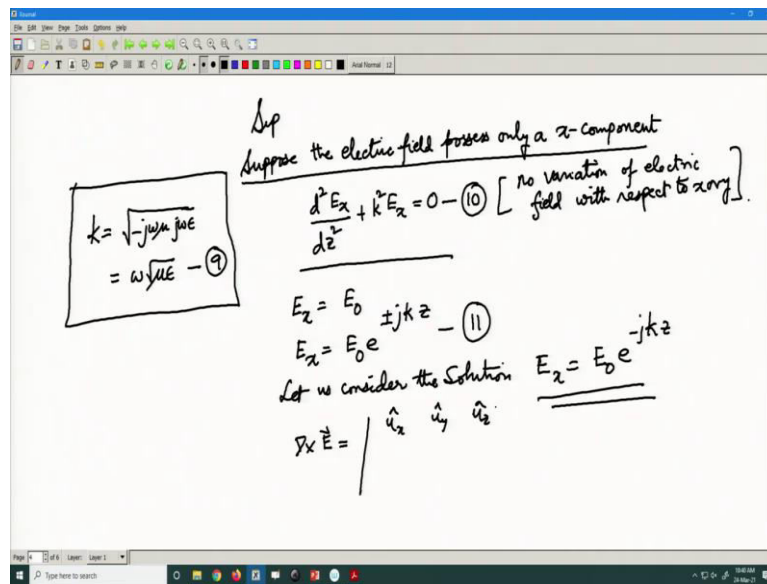 Journal
File Edit View Page Tools Options Help
Arial Normal 12
Sup
Suppose the electric field possess only a x-component
d²Eₓ/dz² + k²Eₓ = 0 — ⑩ [no variation of electric
field with respect to x or y].
k = √(-jωμ jωε)
= ω√με — ⑨
Eₓ = E₀
Eₓ = E₀ e^(±jkz) — ⑪
Let us consider the Solution Eₓ = E₀ e^(-jkz)
∇x E⃗ = | ûₓ û_y û_z
Page 4 of 6 Layer: Layer 1
Type here to search
10:40 AM
24-May-21